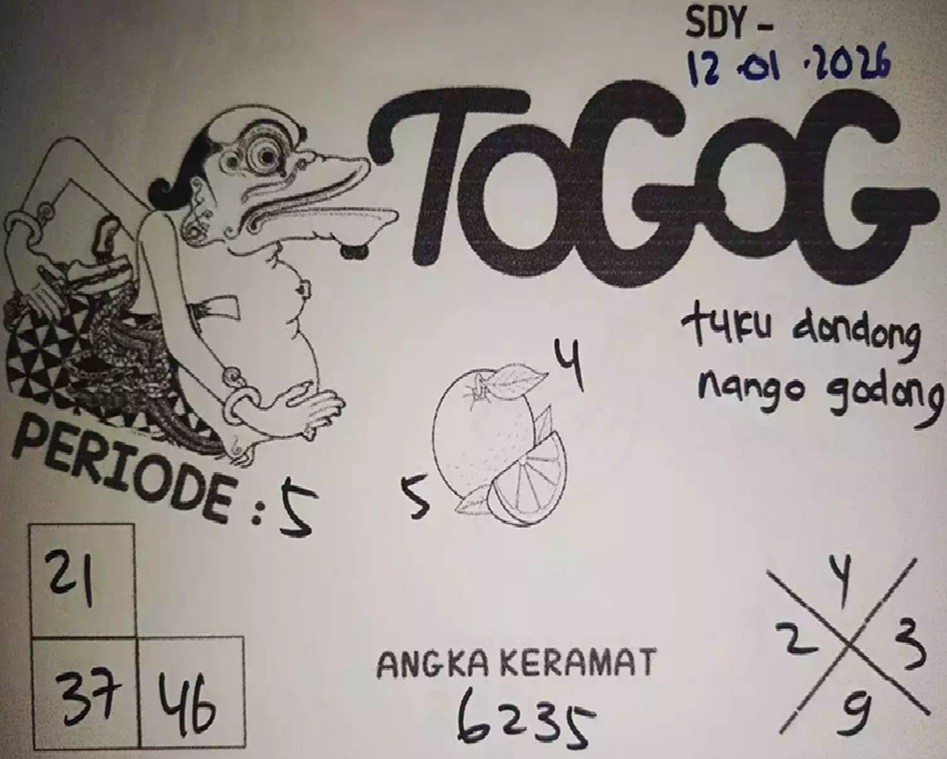 SDY -
12.01.2026
TOGOG
tuku dondong
nango godong
4
5
PERIODE : 5
21
37 46
ANGKA KERAMAT
6235
4
2 3
9